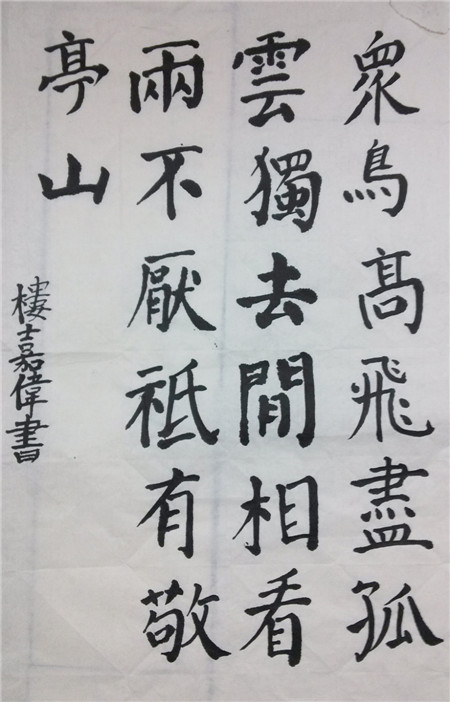 衆鳥髙飛盡孤
雲獨去閒相看
兩不厭祗有敬
亭山
樓嘉偉書